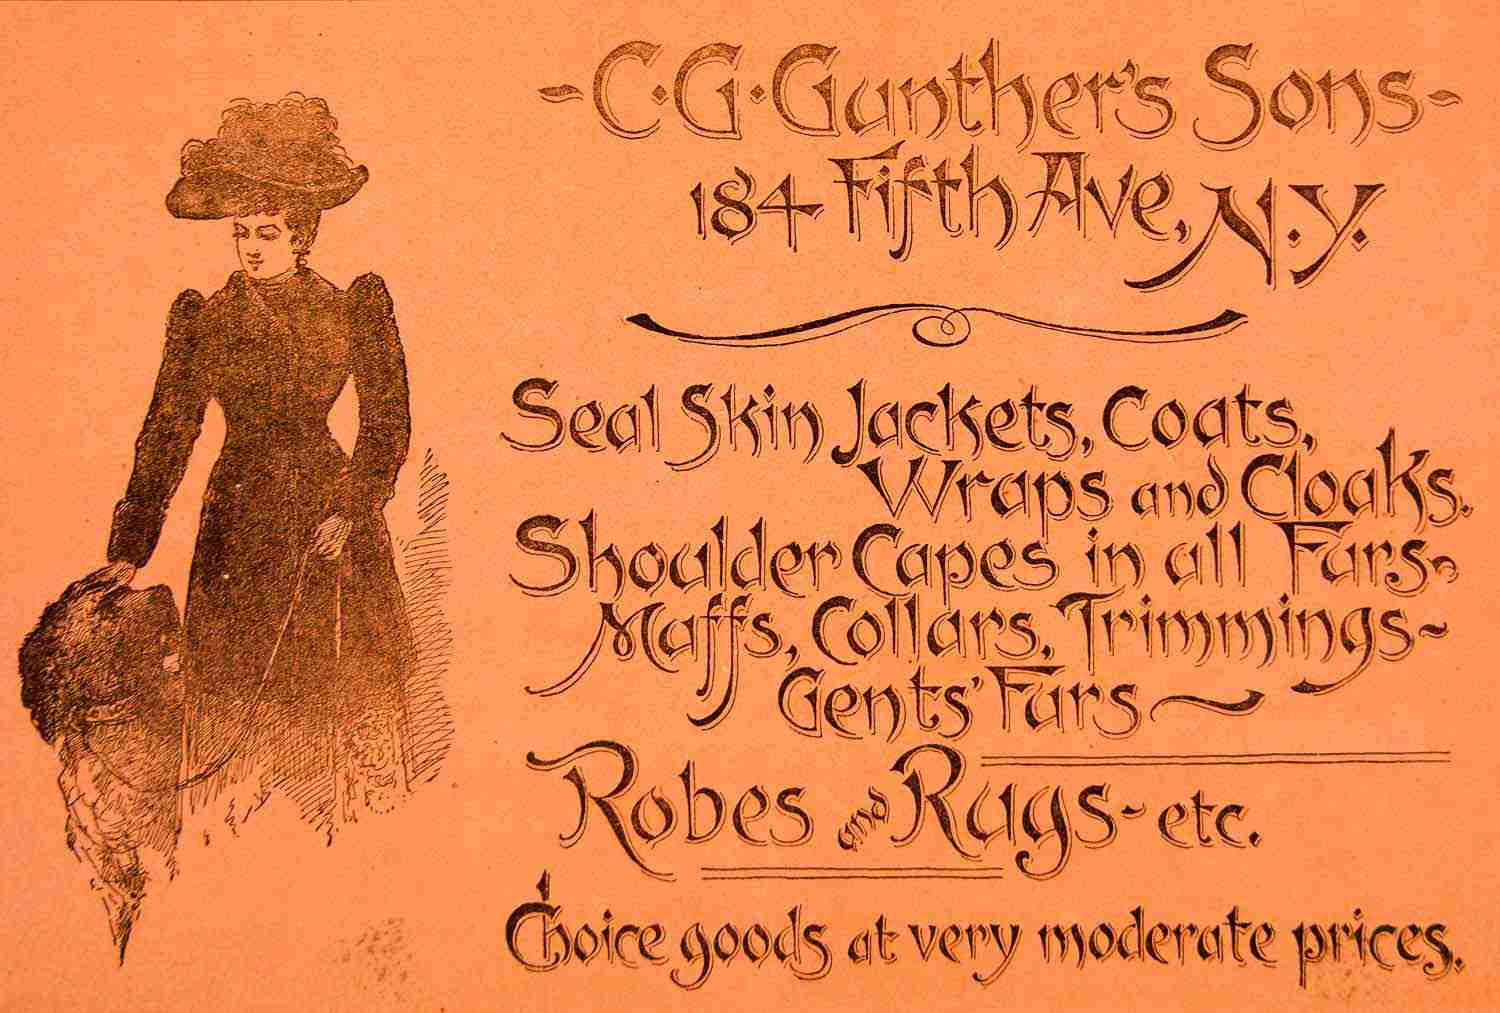 -C·G·Gunther's Sons-
184 Fifth Ave, N.Y.
Seal Skin Jackets, Coats,
Wraps and Cloaks.
Shoulder Capes in all Furs-
Muffs, Collars, Trimmings-
Gents' Furs
Robes and Rugs-etc.
Choice goods at very moderate prices.